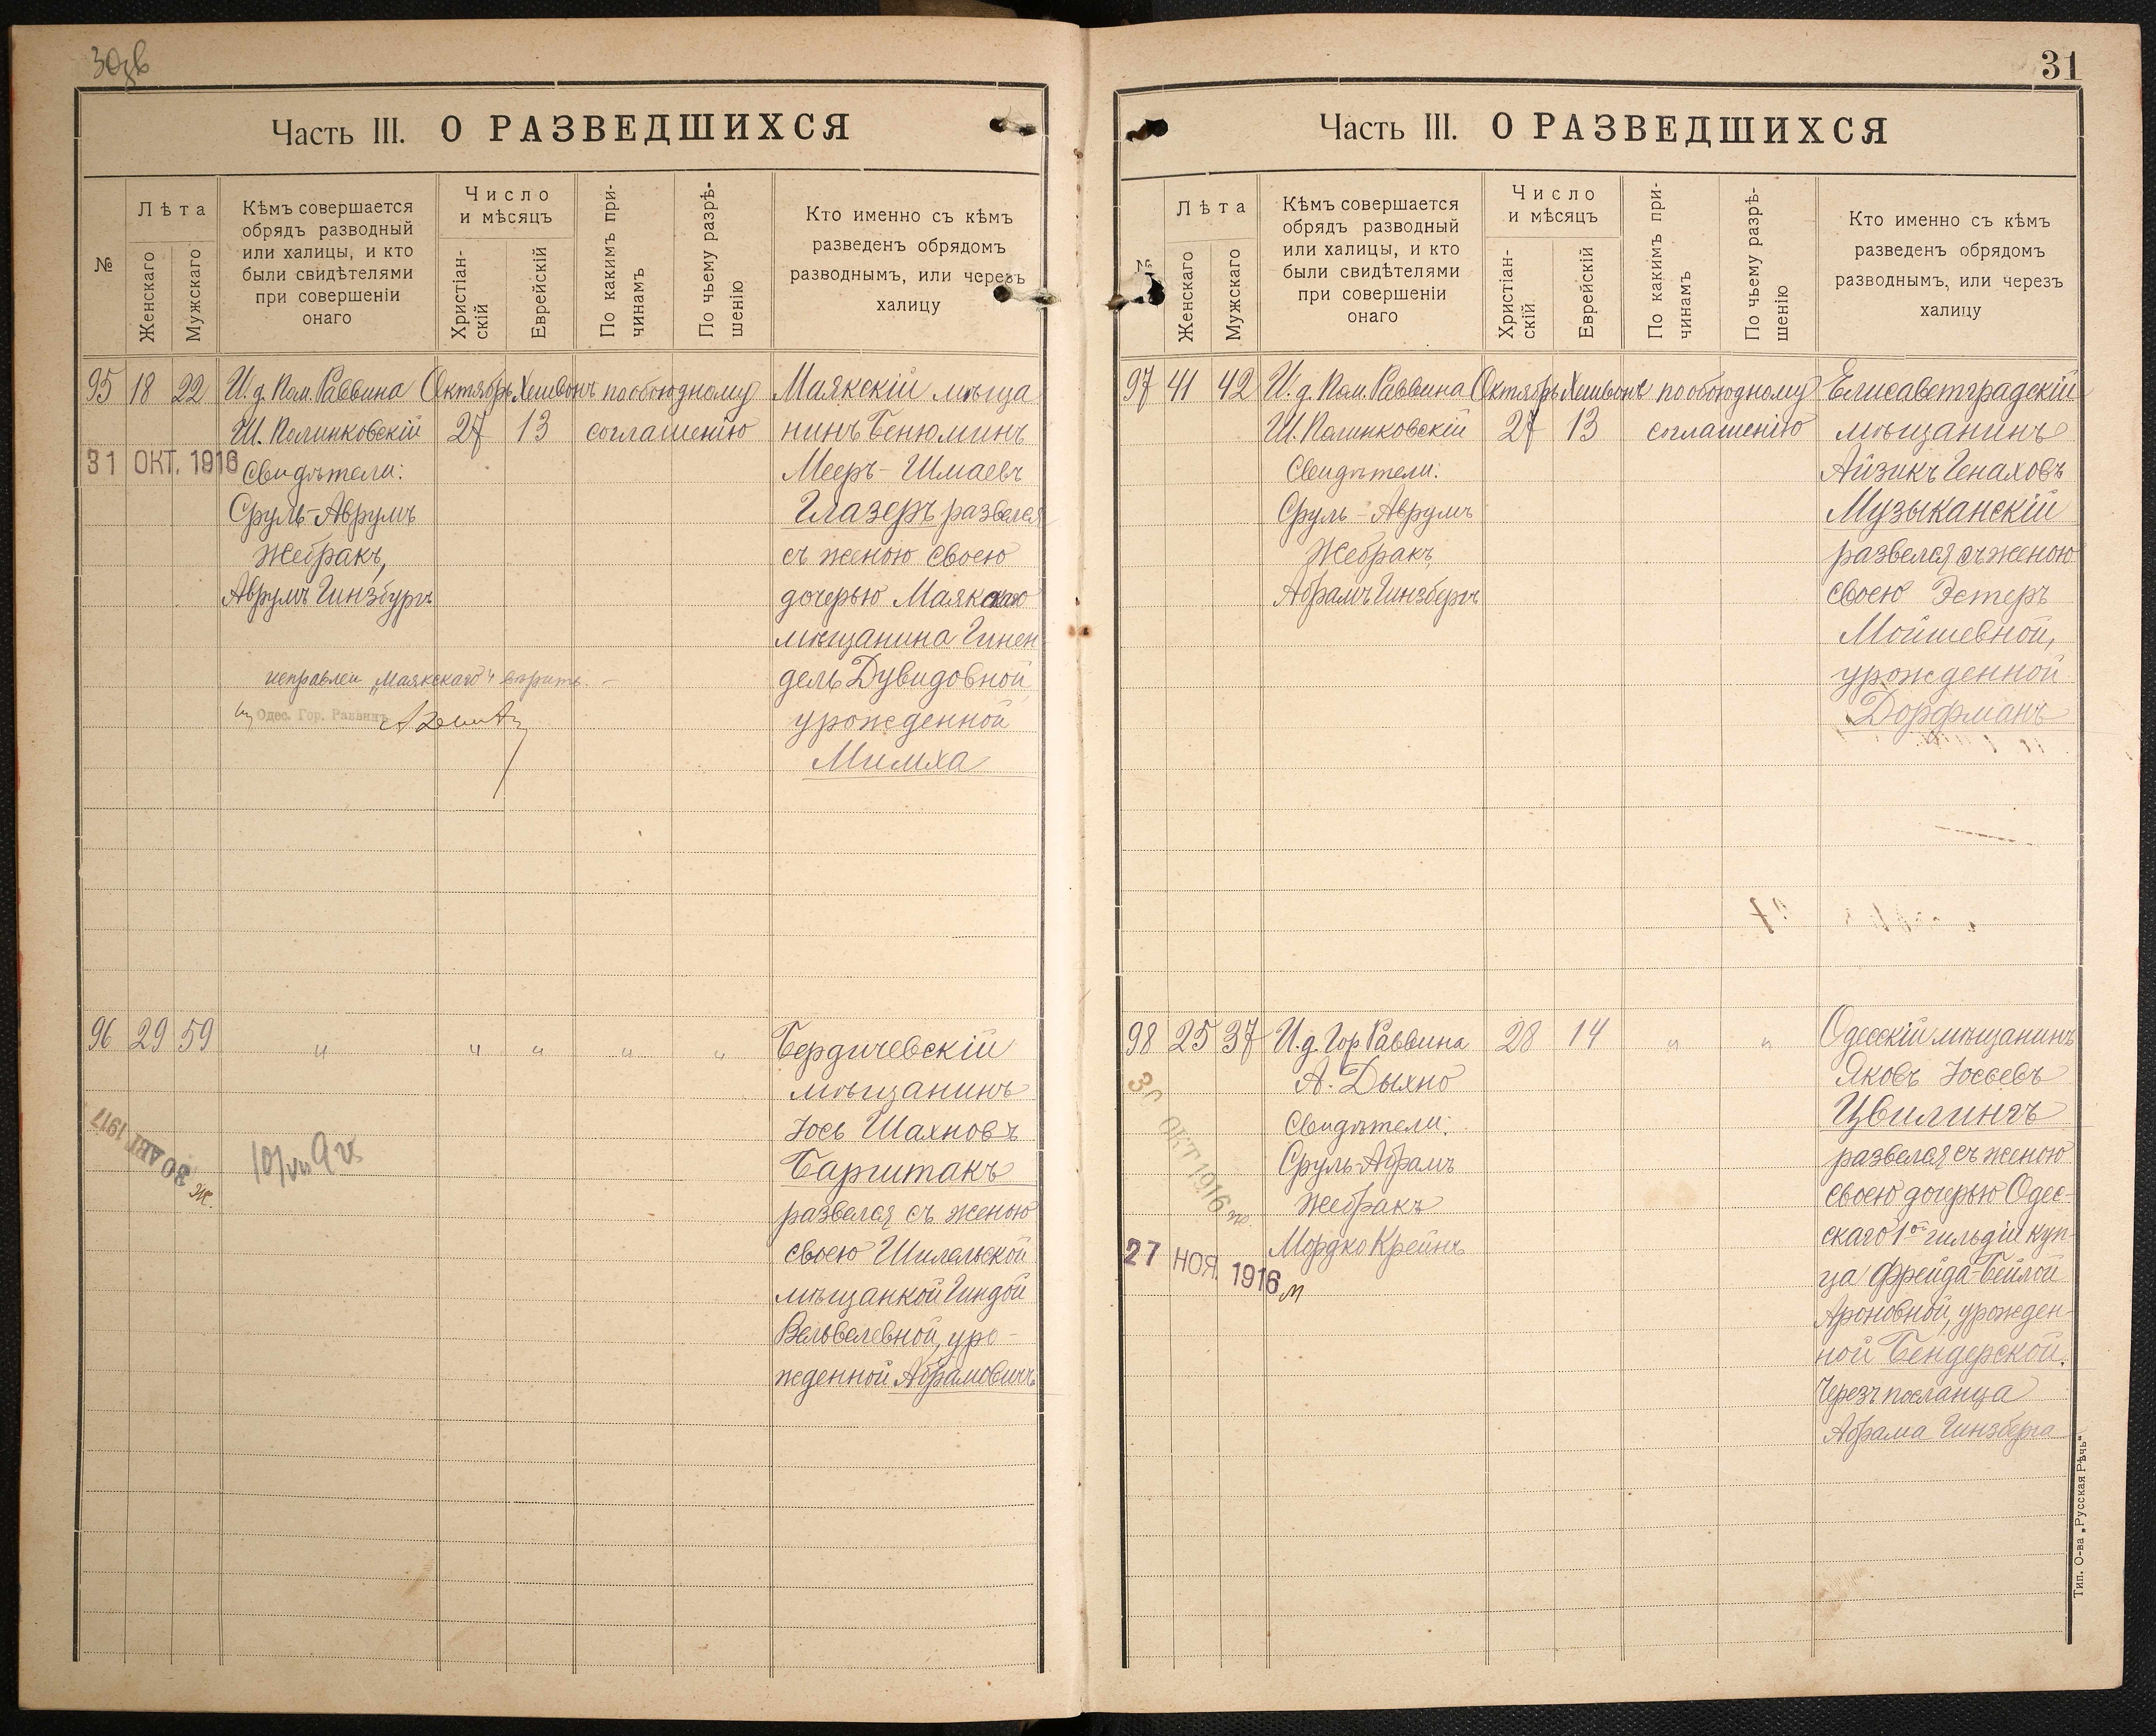 Часть III. О РАЗВЕДШИХСЯ
№
Лѣта
Женскаго
Мужскаго
Кѣмъ совершается
обрядъ разводный
или халицы, и кто
были свидѣтелями
при совершеніи
онаго
Число
и мѣсяцъ
Христіан-
скій
Еврейскій
По какимъ при-
чинамъ
По чьему разрѣ-
шенію
Кто именно съ кѣмъ
разведенъ обрядомъ
разводнымъ, или черезъ
халицу
95 18 22 И. д. Пом. Раввина Октябрь Хешвонъ по обоюдному Маякскій мѣща
Ш. Полинковскій 27 13 соглашенію нинъ Бенюминъ
31 ОКТ. 1916 Свидѣтели: Мееръ-Шмаевъ
Сруль-Аврумъ Глазеръ развелся
Жебракъ, съ женою своею
Аврумъ Гинзбургъ дочерью Маякскаго
мѣщанина Гинен
исправлен „Маякскаго“ вѣрить. — дель Дувидовной
Одес. Гор. Раввинъ урожденной
Мимха
96 29 59 " " " " " Бердичевскій
мѣщанинъ
Іось Шахновъ
30 АВГ 1917 Ж. Барштакъ
развелся съ женою
своею Шилельской
мѣщанкой Гиндой
Вельвелевной, уро-
жденной Абрамовичъ
31
Часть III. О РАЗВЕДШИХСЯ
№
Лѣта
Женскаго
Мужскаго
Кѣмъ совершается
обрядъ разводный
или халицы, и кто
были свидѣтелями
при совершеніи
онаго
Число
и мѣсяцъ
Христіан-
скій
Еврейскій
По какимъ при-
чинамъ
По чьему разрѣ-
шенію
Кто именно съ кѣмъ
разведенъ обрядомъ
разводнымъ, или черезъ
халицу
97 41 42 И. д. Пом. Раввина Октябрь Хешвонъ по обоюдному Елисаветградскій
Ш. Полинковскій 27 13 соглашенію мѣщанинъ
Свидѣтели: Айзикъ Генаховъ
Сруль-Аврумъ Музыканскій
Жебракъ, развелся съ женою
Абрамъ Гинзбергъ своею Эстеръ
Мойшевной,
урожденной
Дорфманъ
98 25 37 И. д. Гор. Раввина 28 14 " " Одесскій мѣщанинъ
А. Дыхно Яковъ Іосьевъ
Свидѣтели: Цвилингъ
30 ОКТ 1916 ж. Сруль-Абрамъ развелся съ женою
Жебракъ своею дочерью Одес-
Мордко Крейнъ скаго 1ой гильдіи куп-
27 НОЯ. 1916 м ца Фрейда-Бейлой
Ароновной, урожден-
ной Бендерской.
Черезъ посланца
Абрама Гинзберга
Тип. О-ва „Русская Рѣчь“